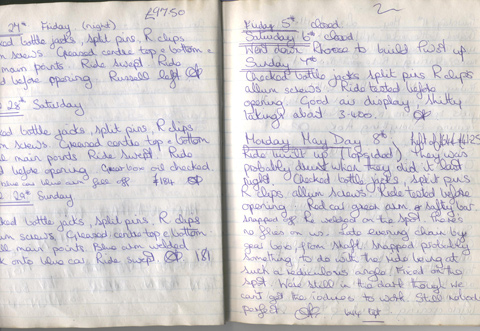 24th Friday (night) £9750
ked bottle jacks, split pins, R clips
n screws Greased centre top & bottom &
main points Ride swept Ride
d before opening Russell left
28th Saturday
ked bottle jacks, split pins, R clips
m screws. Greased centre top & bottom
ll main points Ride swept. Ride
d before opening Gear box oil checked
blue car blue arm fell off £184
29th Sunday
ked bottle jacks, split pins, R clips
m screws, Greased centre top & bottom
ll main points Blue arm welded
k onto blue car. Ride swept 181
2
Friday 5th closed
Saturday 6th closed
Went down Rhosse to build twist up.
Sunday 7th
Checked bottle jacks split pins R clips
allum screws. Ride tested before
opening. Good air display, shitty
takings about 3.400.
Monday May Day 8th
Ride built up (lopsided). They was
probably drunk when they did it last
night. Checked bottle jacks, split pins
R clips, allum screws. Ride tested before
opening. Red car green arm safety bar
snapped off Re welded on the spot. There's
no flies on us. Late evening chain by
gear box, from shaft snapped probably
something to do with the ride being at
such a rediculous angle. Fixed on the
spot. Were still in the dark though we
cant get the to work. Still nobody's
perfect.